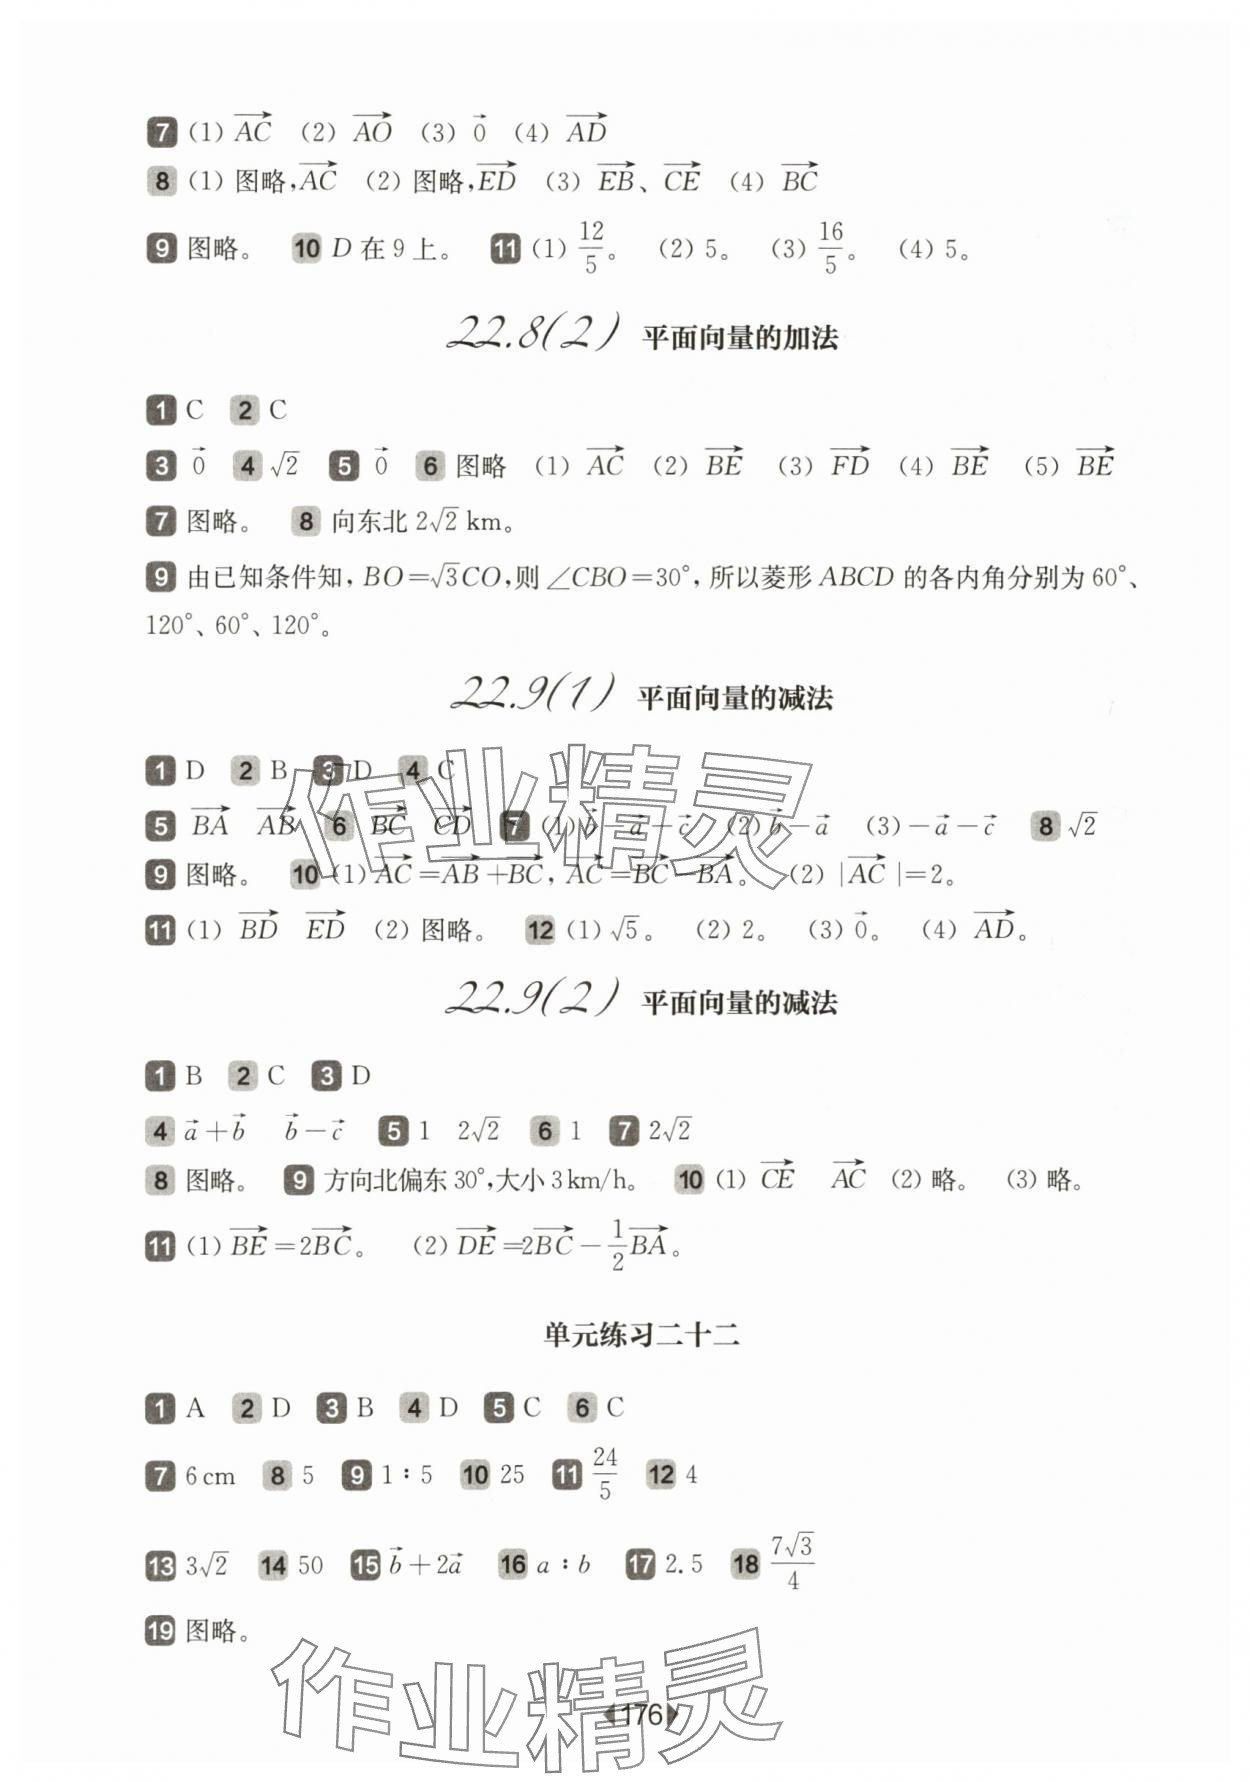 7 (1) $\overrightarrow{AC}$ (2) $\overrightarrow{AO}$ (3) $\vec{0}$ (4) $\overrightarrow{AD}$
8 (1) 图略,$\overrightarrow{AC}$ (2) 图略,$\overrightarrow{ED}$ (3) $\overrightarrow{EB}$、$\overrightarrow{CE}$ (4) $\overrightarrow{BC}$
9 图略。 10 D 在 9 上。 11 (1) $\frac{12}{5}$。 (2) 5。 (3) $\frac{16}{5}$。 (4) 5。
22.8(2) 平面向量的加法
1 C 2 C
3 $\vec{0}$ 4 $\sqrt{2}$ 5 $\vec{0}$ 6 图略 (1) $\overrightarrow{AC}$ (2) $\overrightarrow{BE}$ (3) $\overrightarrow{FD}$ (4) $\overrightarrow{BE}$ (5) $\overrightarrow{BE}$
7 图略。 8 向东北 $2\sqrt{2}$ km。
9 由已知条件知, BO=$\sqrt{3}$CO,则∠CBO=30°, 所以菱形 ABCD 的各内角分别为 60°、
120°、60°、120°。
22.9(1) 平面向量的减法
1 D 2 B 3 D 4 C
5 $\overrightarrow{BA}$ $\overrightarrow{AB}$ 6 $\overrightarrow{BC}$ $\overrightarrow{CD}$ 7 (1) $\vec{b}-\vec{a}-\vec{c}$ (2) $\vec{b}-\vec{a}$ (3) $-\vec{a}-\vec{c}$ 8 $\sqrt{2}$
9 图略。 10 (1) $\overrightarrow{AC}=\overrightarrow{AB}+\overrightarrow{BC}$, $\overrightarrow{AC}=\overrightarrow{BC}-\overrightarrow{BA}$。 (2) |$\overrightarrow{AC}$|=2。
11 (1) $\overrightarrow{BD}$ $\overrightarrow{ED}$ (2) 图略。 12 (1) $\sqrt{5}$。 (2) 2。 (3) $\vec{0}$。 (4) $\overrightarrow{AD}$。
22.9(2) 平面向量的减法
1 B 2 C 3 D
4 $\vec{a}+\vec{b}$ $\vec{b}-\vec{c}$ 5 1 $2\sqrt{2}$ 6 1 7 $2\sqrt{2}$
8 图略。 9 方向北偏东 30°,大小 3 km/h。 10 (1) $\overrightarrow{CE}$ $\overrightarrow{AC}$ (2) 略。 (3) 略。
11 (1) $\overrightarrow{BE}=2\overrightarrow{BC}$。 (2) $\overrightarrow{DE}=2\overrightarrow{BC}-\frac{1}{2}\overrightarrow{BA}$。
单元练习二十二
1 A 2 D 3 B 4 D 5 C 6 C
7 6 cm 8 5 9 1∶5 10 25 11 $\frac{24}{5}$ 12 4
13 $3\sqrt{2}$ 14 50 15 $\vec{b}+2\vec{a}$ 16 a∶b 17 2.5 18 $\frac{7\sqrt{3}}{4}$
19 图略。
176
作业精灵
作业精灵